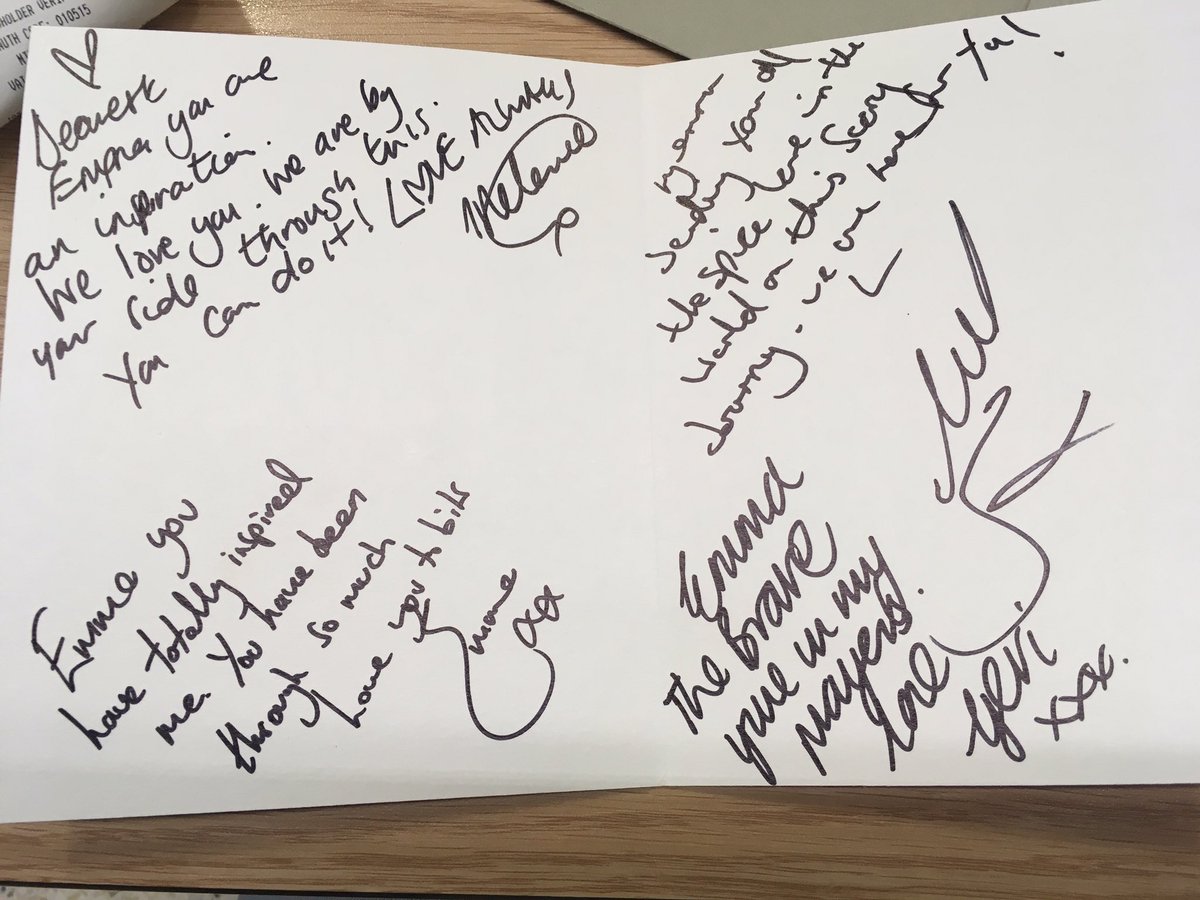 HOLDER VERIF
AUTH CODE: 010515
Dearest
Emma you are
an inspiration.
We love you. We are by
your side through this.
You can do it! LOVE ALWAYS
Melanie
x
Emma you
have totally inspired
me. You have been
through so much
Love you to bits
xx
Sending you all
the spice love in the
World on this Scary
Journey. we are here for You!
Emma
The Brave
your in my
prayers.
Love
Geri
xxx.